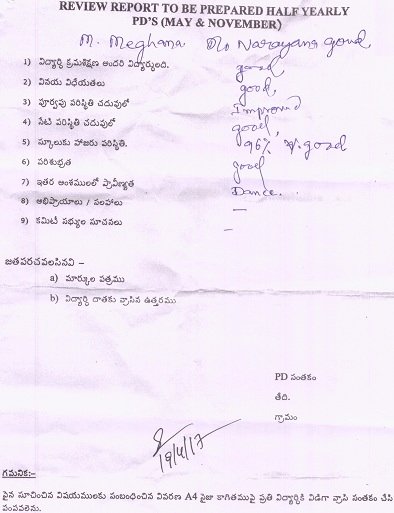 REVIEW REPORT TO BE PREPARED HALF YEARLY
PD'S (MAY & NOVEMBER)
M. Meghana D/o Narayana goud
1) విద్యార్థి క్రమశిక్షణ అందరి విద్యార్థులది. good
2) వినయ విధేయతలు good,
3) పూర్వపు పరిస్థితి చదువులో Improved
4) నేటి పరిస్థితి చదువులో good,
5) స్కూలుకు హాజరు పరిస్థితి. 96% V.good
6) పరిశుభ్రత good
7) ఇతర అంశములలో ప్రావీణ్యత Dance.
8) అభిప్రాయాలు / సలహాలు –
9) కమిటీ సభ్యుల సూచనలు –
జతపరచవలసినవి :-
a) మార్కుల పత్రము
b) విద్యార్థి దాతకు వ్రాసిన ఉత్తరము
PD సంతకం
తేది.
గ్రామం
19/4/17
గమనిక:-
పైన సూచించిన విషయములకు సంబంధించిన వివరణ A4 సైజు కాగితముపై ప్రతి విద్యార్థికి విడిగా వ్రాసి సంతకం చేసి
పంపవలెను.